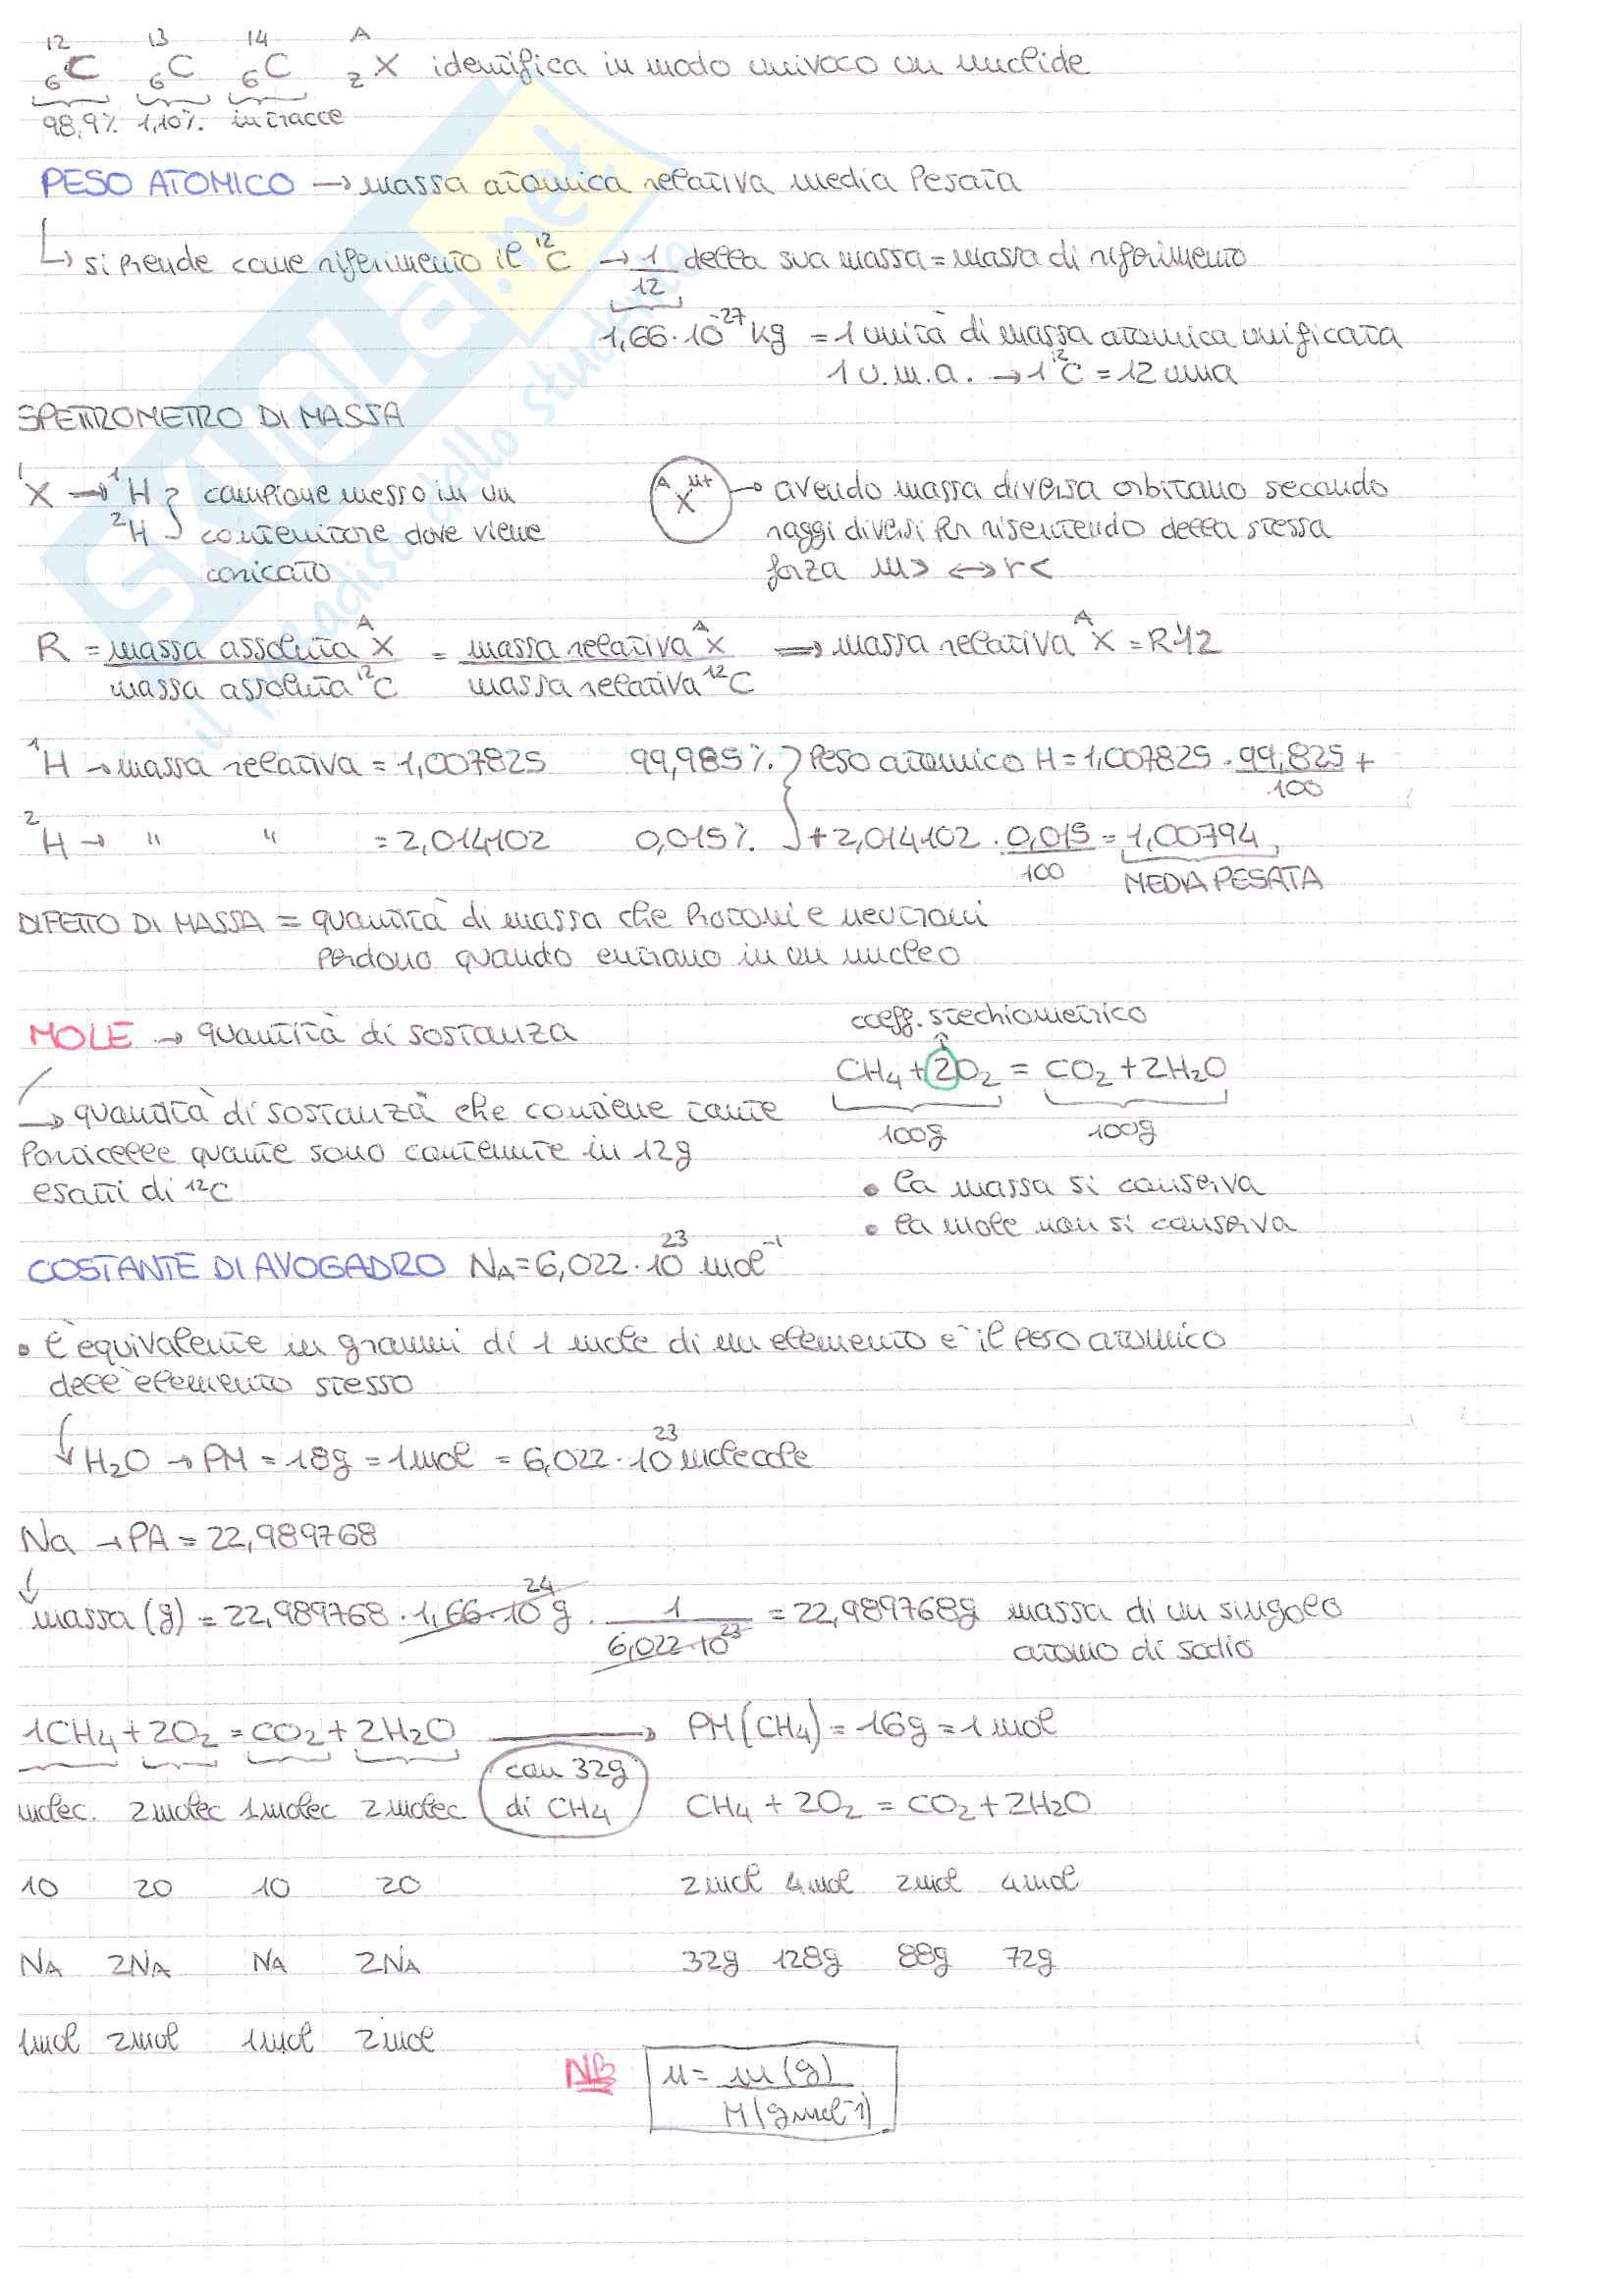 ¹²₆C ¹³₆C ¹⁴₆C ᴬ_Z X identifica in modo univoco un nuclide
98,9% 1,10% in tracce
PESO ATOMICO → massa atomica relativa media pesata
↳ si prende come riferimento il ¹²C → 1/12 della sua massa = massa di riferimento
1,66·10⁻²⁷ kg = 1 unità di massa atomica unificata
1 u.m.a. → 1 ¹²C = 12 uma
SPETTROMETRO DI MASSA
X → ¹H } campione messo in un
²H } contenitore dove viene
caricato
ᴬXⁿ⁺ → avendo massa diversa orbitano secondo
raggi diversi pur risentendo della stessa
forza m> ↔ r<
R = massa assoluta ᴬX / massa assoluta ¹²C = massa relativa ᴬX / massa relativa ¹²C → massa relativa ᴬX = R·12
¹H → massa relativa = 1,007825 99,985% } Peso atomico H = 1,007825 · 99,825/100 +
²H → " " = 2,014102 0,015% } + 2,014102 · 0,015/100 = 1,00794
MEDIA PESATA
DIFETTO DI MASSA = quantità di massa che protoni e neutroni
perdono quando entrano in un nucleo
MOLE → quantità di sostanza
→ quantità di sostanza che contiene tante
particelle quante sono contenute in 12g
esatti di ¹²C
coeff. stechiometrico
CH₄ + 2O₂ = CO₂ + 2H₂O
100g 100g
• la massa si conserva
• la mole non si conserva
COSTANTE DI AVOGADRO Nᴀ = 6,022·10²³ mol⁻¹
• l'equivalente in grammi di 1 mole di un elemento è il peso atomico
dell'elemento stesso
↓ H₂O → PM = 18g = 1mol = 6,022·10²³ molecole
Na → PA = 22,989768
↓
massa (g) = 22,989768 · 1,66·10²⁴ g · 1/6,022·10²³ = 22,989768g massa di un singolo
atomo di sodio
1CH₄ + 2O₂ = CO₂ + 2H₂O → PM(CH₄) = 16g = 1 mol
con 32g
di CH₄
molec. 2molec 1molec 2molec. CH₄ + 2O₂ = CO₂ + 2H₂O
10 20 10 20 2mol 4mol 2mol 4mol
Nᴀ 2Nᴀ Nᴀ 2Nᴀ 32g 128g 88g 72g
1mol 2mol 1mol 2mol
NB n = m(g) / M(gmol⁻¹)
SKUOLA.net
il paradiso dello studente